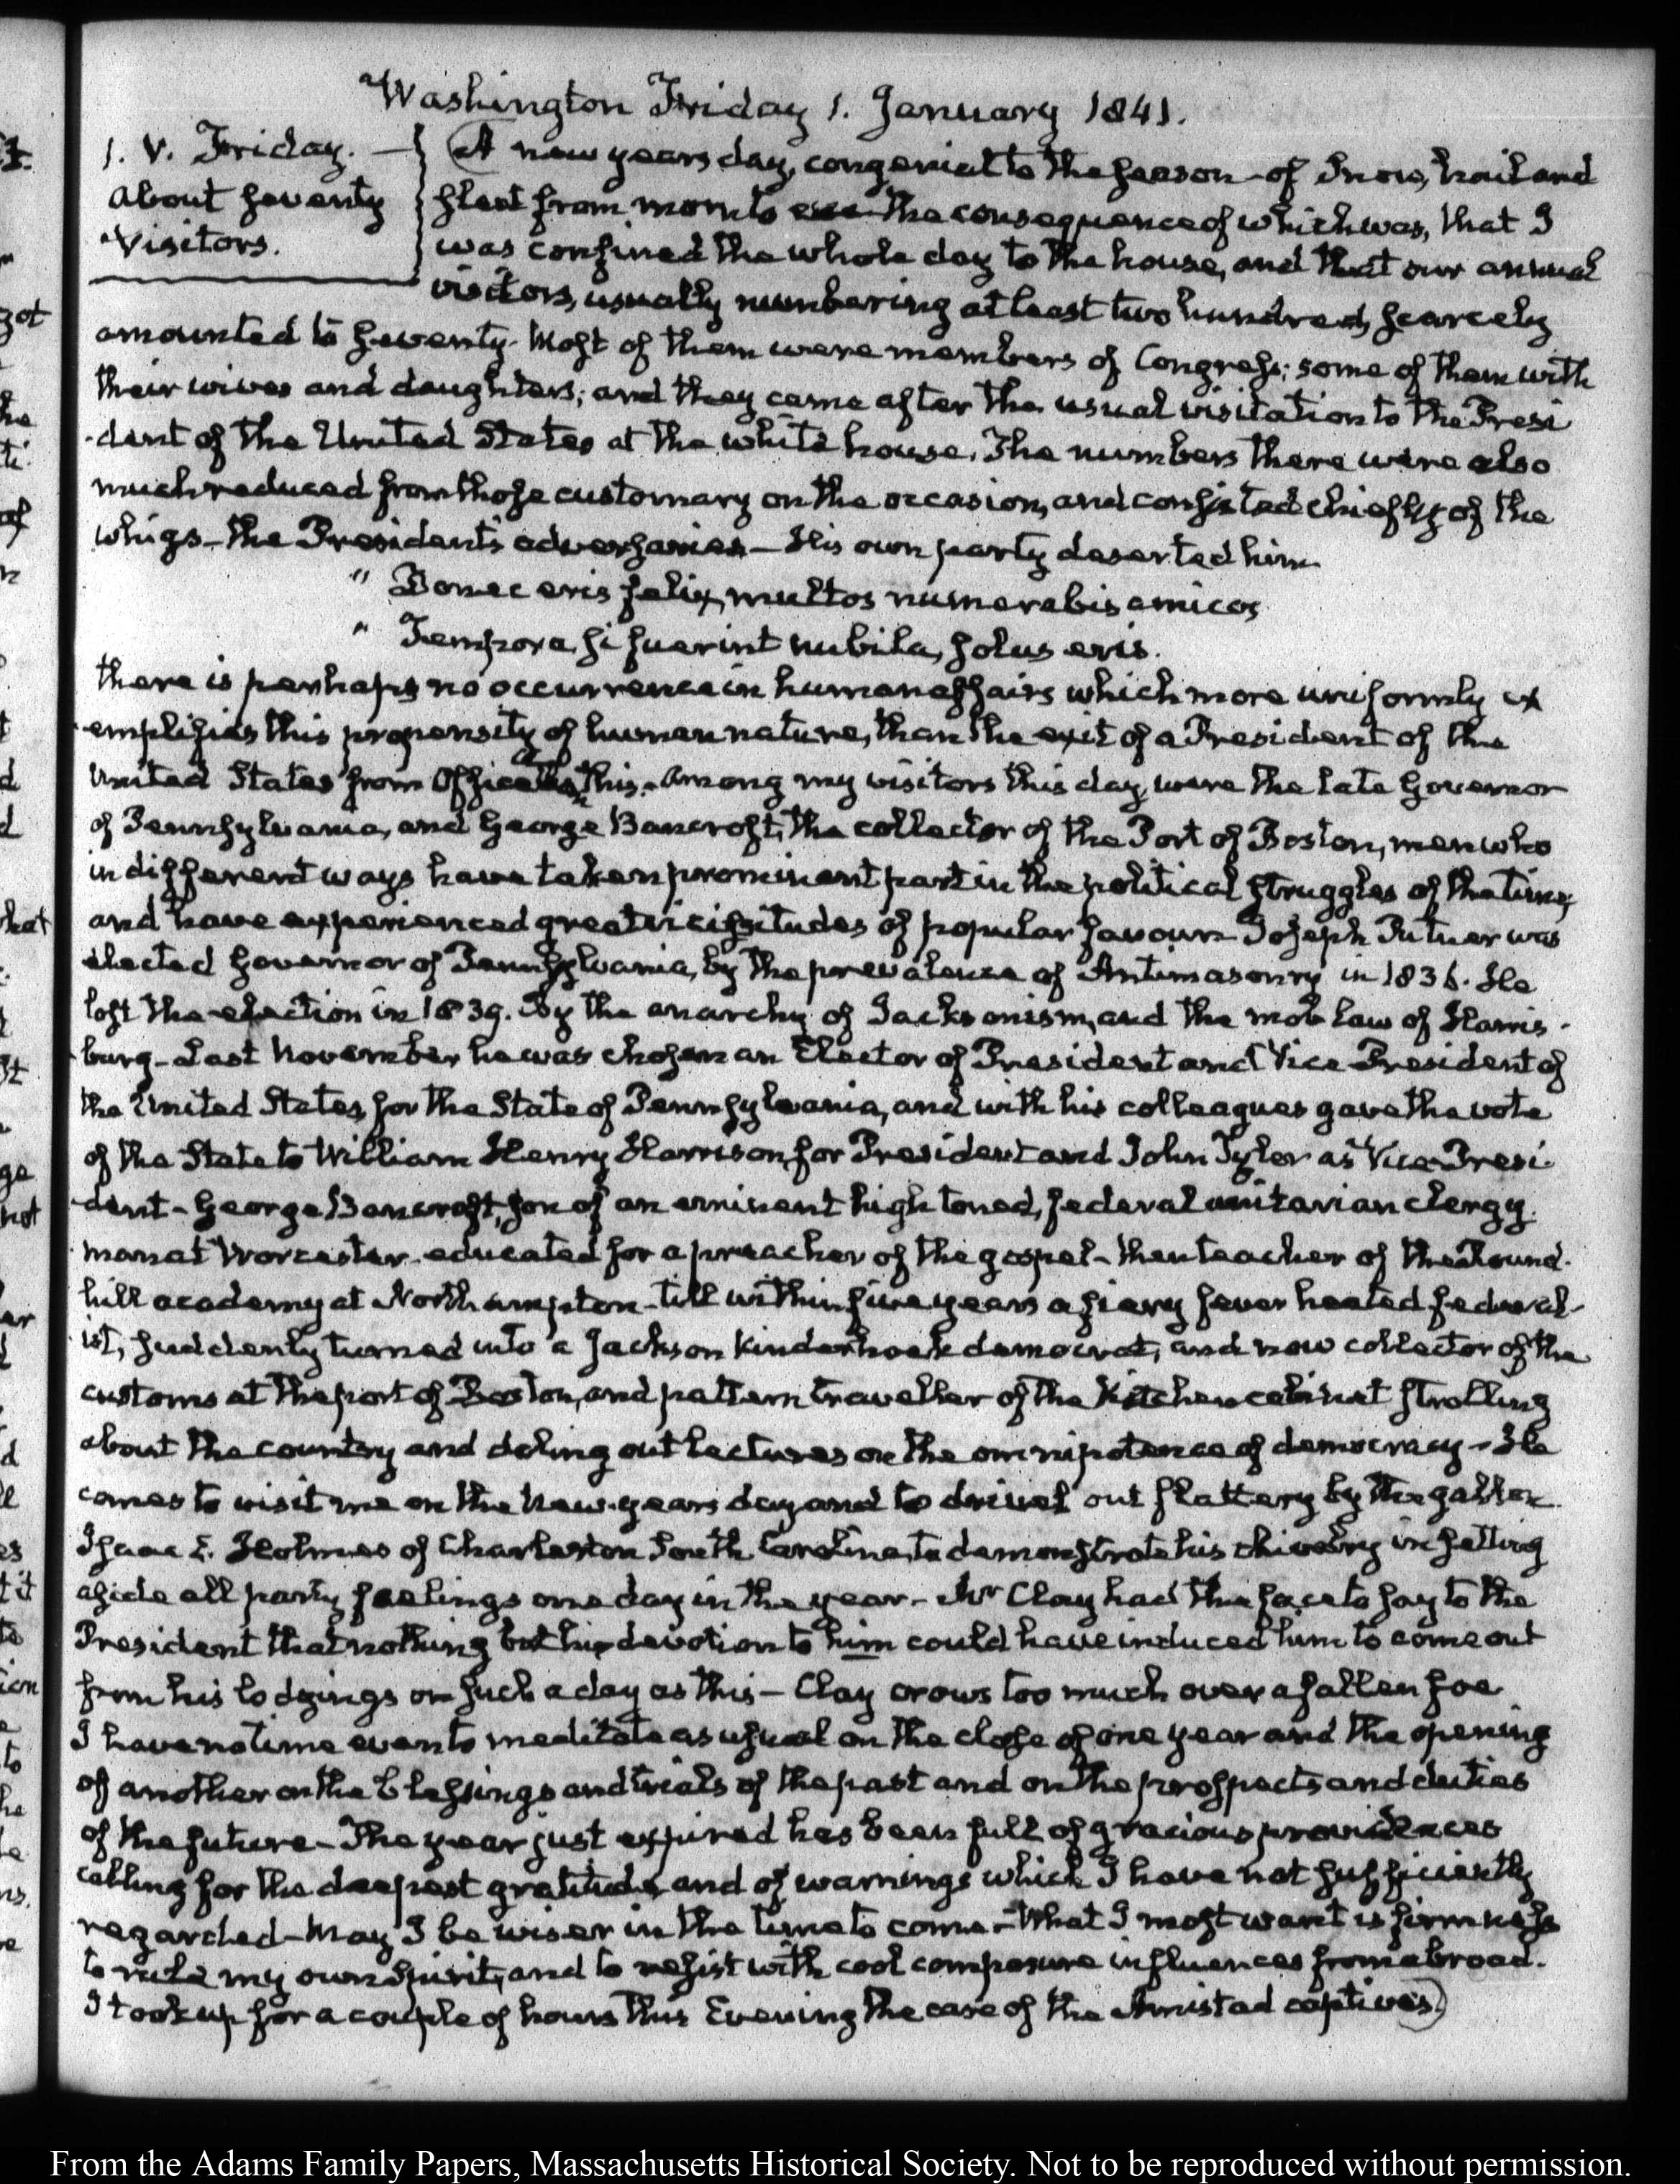 Washington Friday 1. January 1841.
1. V. Friday.
About seventy
Visitors.
A new years day, congenial to the season of Snow, hail and
sleet from morn to eve the consequence of which was, that I
was confined the whole day to the house, and that our annual
visitors, usually numbering at least two hundred, scarcely
amounted to seventy. Most of them were members of Congress; some of them with
their wives and daughters; and they came after the usual visitation to the Presi
dent of the United States at the white house. The numbers there were also
much reduced from those customary on the occasion, and consisted chiefly of the
whigs — the President's adversaries — His own party deserted him
" Donec eris felix, multos numerabis amicos
" Tempora si fuerint nubila, solus eris.
there is perhaps no occurrence in human affairs which more uniformly ex
emplifies this propensity of human nature, than the exit of a President of the
United States from Office this. Among my visitors this day, were the late Governor
of Pennsylvania, and George Bancroft, the collector of the Port of Boston, men who
in different ways have taken prominent part in the political struggles of the time,
and have experienced great vicissitudes of popular favour. Joseph Ritner was
elected Governor of Pennsylvania, by the prevalence of Antimasonry in 1836. He
lost the election in 1839. By the anarchy of Jacksonism, and the mob law of Harris-
burg — Last November, he was chosen an Elector of President and Vice-President of
the United States, for the State of Pennsylvania, and with his colleagues gave the vote
of the State to William Henry Harrison, for President and John Tyler as Vice-Presi-
dent — George Bancroft, son of an eminent high toned, federal unitarian clergy-
man at Worcester — educated for a preacher of the gospel — then teacher of the Round-
hill academy at Northampton — till within five years a fiery fever heated federal-
ist, suddenly turned into a Jackson Kinderhook democrat, and now collector of the
customs at the port of Boston, and pattern traveller of the Kitchen cabinet strolling
about the country and doling out lectures on the omnipotence of democracy — He
comes to visit me on the New-years day and to drivel out flattery by the gallon.
Isaac E. Holmes of Charleston South Carolina, to demonstrate his chivalry in setting
aside all party feelings one day in the year — Mr Clay had the face to say to the
President that nothing but his devotion to him could have induced him to come out
from his lodgings on such a day as this — Clay crows too much over a fallen foe
I have no time even to meditate as usual on the close of one year and the opening
of another on the blessings and trials of the past and on the prospects and duties
of the future — The year just expired has been full of gracious providences
calling for the deepest gratitude, and of warnings which I have not sufficiently
regarded — May I be wiser in the time to come — What I most want is firmness
to rule my own Spirit, and to resist with cool composure influences from abroad.
I took up for a couple of hours this Evening the case of the Amistad captives.
From the Adams Family Papers, Massachusetts Historical Society. Not to be reproduced without permission.